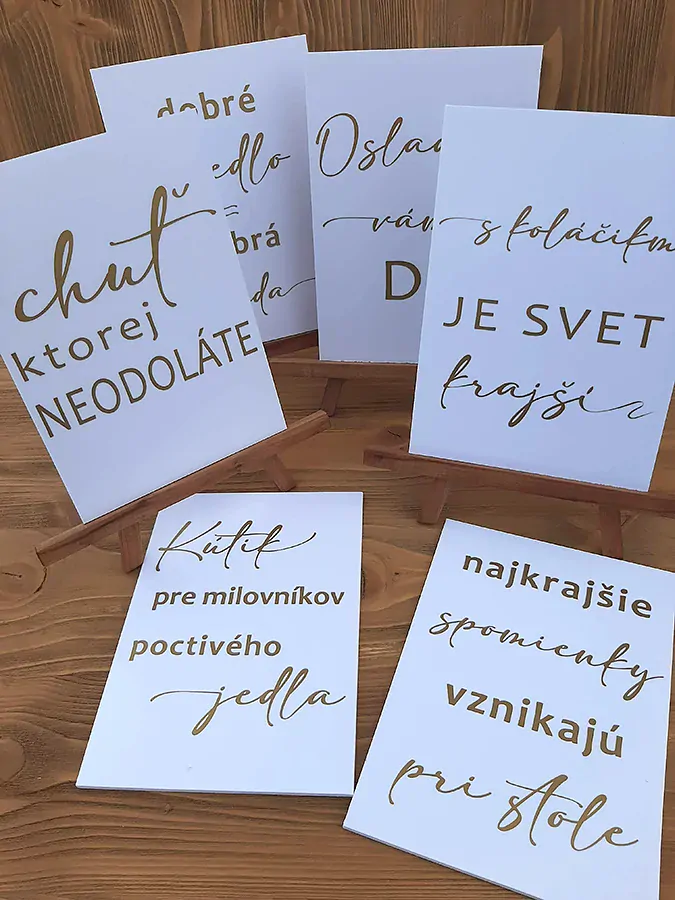 dobré
jedlo
=
dobrá
vám
chuť
ktorej
NEODOLÁTE
s koláčikm
JE SVET
krajší
Kútik
pre milovníkov
poctivého
jedla
najkrajšie
spomienky
vznikajú
pri stole